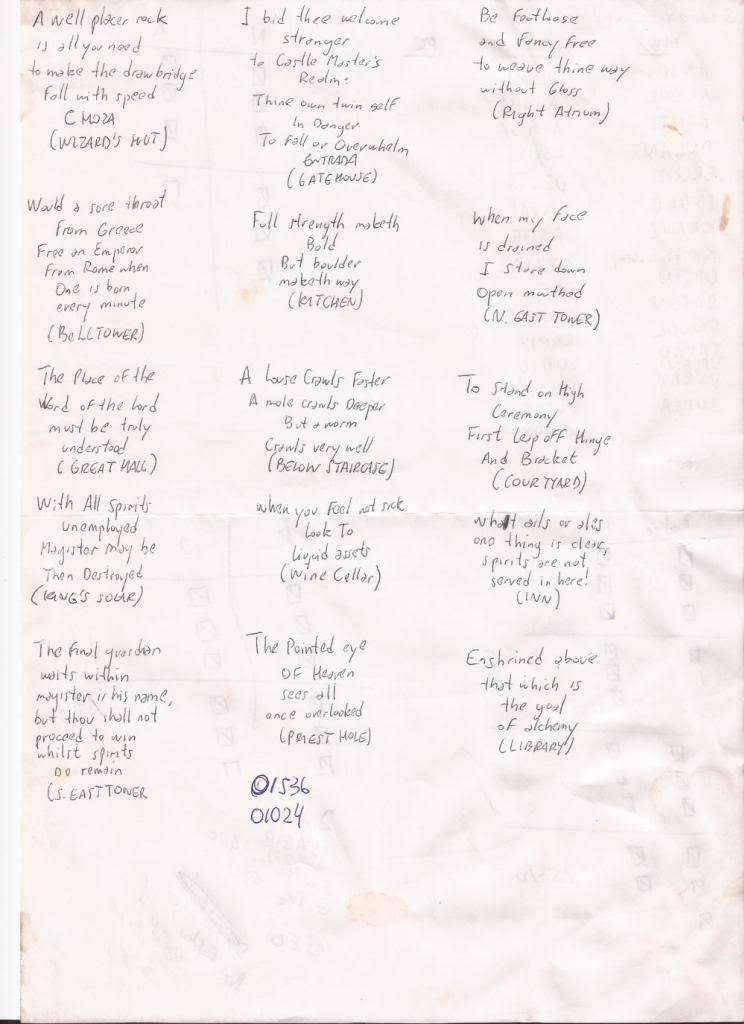 A well placer rock
is all you need
to make the drawbridge
Fall with speed
CHOZA
(WIZARD'S HUT)
I bid thee welcome
stranger
to Castle Master's
Realm:
Thine own twin self
In Danger
To Fall or Overwhelm
ENTRADA
(GATEHOUSE)
Be Footloose
and Fancy Free
to weave thine way
without Gloss
(Right Atrium)
Would a sore throat
From Greece
Free an Emperor
From Rome when
One is born
every minute
(BELLTOWER)
Full strength maketh
Bold
But boulder
maketh way
(KITCHEN)
When my Face
is drained
I stare down
Open mouthed
(N. EAST TOWER)
The Place of the
Word of the Lord
must be truly
understood
(GREAT HALL)
A louse Crawls Faster
A mole crawls Deeper
But a worm
Crawls very well
(BELOW STAIRCASE)
To Stand on High
Ceremony
First leap off Hinge
And Bracket
(COURTYARD)
With All Spirits
unemployed
Magistor may be
Then Destroyed
(KING'S SOLAR)
when you Feel not sick
look To
liquid assets
(Wine Cellar)
what ails or ales
one thing is clear,
spirits are not
served in here!
(INN)
The final guardian
waits within
magister is his name,
but thou shall not
proceed to win
whilst spirits
DO remain
(S. EAST TOWER
The Pointed eye
OF Heaven
sees all
once overlooked
(PRIEST HOLE)
01536
01024
Enshrined above
that which is
the goal
of alchemy
(LIBRARY)